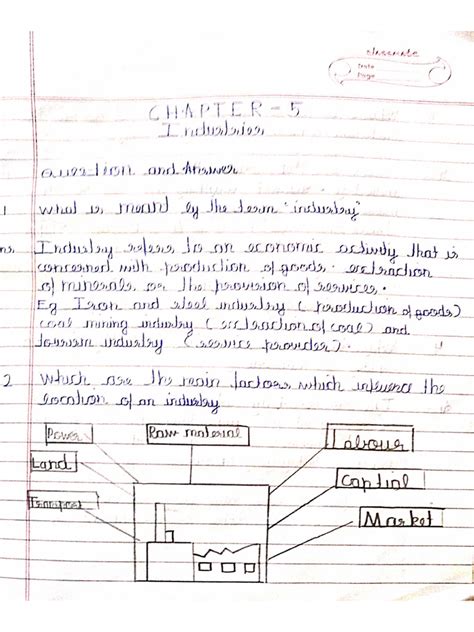 classmate
Date
Page
CHAPTER - 5
Industries
Question and Answer
1 What is meant by the term "industry"
Ans. Industry refers to an economic activity that is
concerned with production of goods . extraction
of minerals or the provision of services .
Eg Iron and steel industry ( production of goods)
coal mining industry ( extraction of coal) and
tourism industry ( service provider) .
2 Which are the main factors which influence the
location of an industry
Power Raw material Labour
Land
Capital
Transport
Market